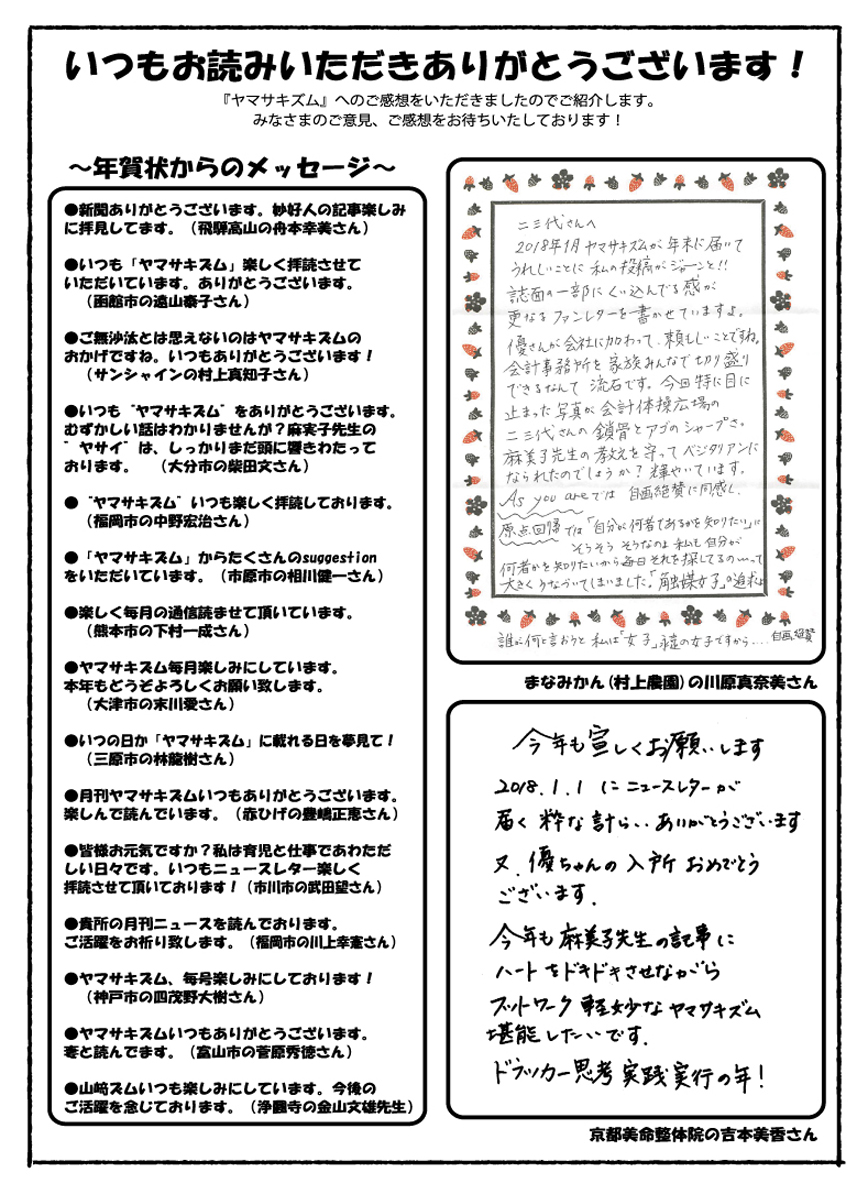 いつもお読みいただきありがとうございます！
『ヤマサキズム』へのご感想をいただきましたのでご紹介します。
みなさまのご意見、ご感想をお待ちいたしております！
～年賀状からのメッセージ～
●新聞ありがとうございます。妙好人の記事楽しみ
に拝見してます。（飛騨高山の舟本幸美さん）
●いつも「ヤマサキズム」楽しく拝読させて
いただいています。ありがとうございます。
（函館市の遠山泰子さん）
●ご無沙汰とは思えないのはヤマサキズムの
おかげですね。いつもありがとうございます！
（サンシャインの村上真知子さん）
●いつも〝ヤマサキズム〟をありがとうございます。
むずかしい話はわかりませんが？麻実子先生の
〝ヤサイ〟は、しっかりまだ頭に響きわたって
おります。　（大分市の柴田文さん）
●〝ヤマサキズム〟いつも楽しく拝読しております。
（福岡市の中野宏治さん）
●「ヤマサキズム」からたくさんのsuggestion
をいただいています。（市原市の相川健一さん）
●楽しく毎月の通信読ませて頂いています。
（熊本市の下村一成さん）
●ヤマサキズム毎月楽しみにしています。
本年もどうぞよろしくお願い致します。
（大津市の末川愛さん）
●いつの日か「ヤマサキズム」に載れる日を夢見て！
（三原市の林龍樹さん）
●月刊ヤマサキズムいつもありがとうございます。
楽しんで読んでいます。（赤ひげの豊嶋正恵さん）
●皆様お元気ですか？私は育児と仕事であわただ
しい日々です。いつもニュースレター楽しく
拝読させて頂いております！（市川市の武田望さん）
●貴所の月刊ニュースを読んでおります。
ご活躍をお祈り致します。（福岡市の川上幸憲さん）
●ヤマサキズム、毎号楽しみにしております！
（神戸市の四茂野大樹さん）
●ヤマサキズムいつもありがとうございます。
妻と読んでます。（富山市の菅原秀徳さん）
●山﨑ズムいつも楽しみにしています。今後の
ご活躍を念じております。（浄圓寺の金山文雄先生）
二三代さんへ
2018年1月 ヤマサキズムが 年末に届いて
うれしいことに 私の投稿がジャーンと!!
誌面の一部に くい込んでる感が
更なる ファンレターを書かせていますよ。
優さんが会社に加わって、頼もしいことですね。
会計事務所を 家族みんなで切り盛り
できるなんて 流石です。今回特に目に
止まった写真が 会計体操広場の
二三代さんの 鎖骨とアゴのシャープさ。
麻美子先生の教えを守って ベジタリアンに
なられたのでしょうか？輝やいています。
As you areでは 自画絶賛に同感し、
原点回帰では「自分が何者であるかを知りたい」に
そうそう そうなのよ 私も自分が
何者かを知りたいから毎日それを探してるの…って
大きくうなづいてしまいました。「触媒女子」の追求よ
誰が何と言おうと 私は「女子」永遠の女子ですから…… 自画絶賛
まなみかん(村上農園)の川原真奈美さん
今年も宜しくお願いします
2018.1.1 に ニュースレターが
届く 粋な計らい、ありがとうございます
又、優ちゃんの 入所 おめでとう
ございます.
今年も 麻美子先生の記事に
ハート をドキドキさせながら
フットワーク 軽妙な ヤマサキズム
堪能したいです.
ドラッカー思考 実践 実行の年！
京都美命整体院の吉本美香さん